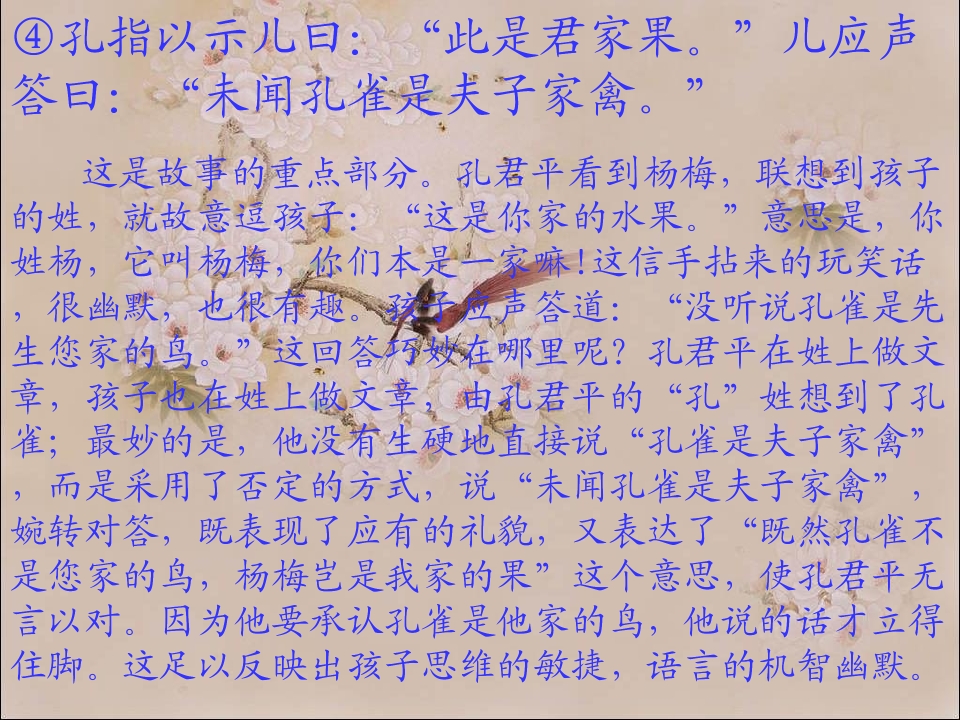 ④孔指以示儿曰：“此是君家果。”儿应声
答曰：“未闻孔雀是夫子家禽。”
这是故事的重点部分。孔君平看到杨梅，联想到孩子
的姓，就故意逗孩子：“这是你家的水果。”意思是，你
姓杨，它叫杨梅，你们本是一家嘛!这信手拈来的玩笑话
，很幽默，也很有趣。孩子应声答道：“没听说孔雀是先
生您家的鸟。”这回答巧妙在哪里呢？孔君平在姓上做文
章，孩子也在姓上做文章，由孔君平的“孔”姓想到了孔
雀；最妙的是，他没有生硬地直接说“孔雀是夫子家禽”
，而是采用了否定的方式，说“未闻孔雀是夫子家禽”，
婉转对答，既表现了应有的礼貌，又表达了“既然孔雀不
是您家的鸟，杨梅岂是我家的果”这个意思，使孔君平无
言以对。因为他要承认孔雀是他家的鸟，他说的话才立得
住脚。这足以反映出孩子思维的敏捷，语言的机智幽默。